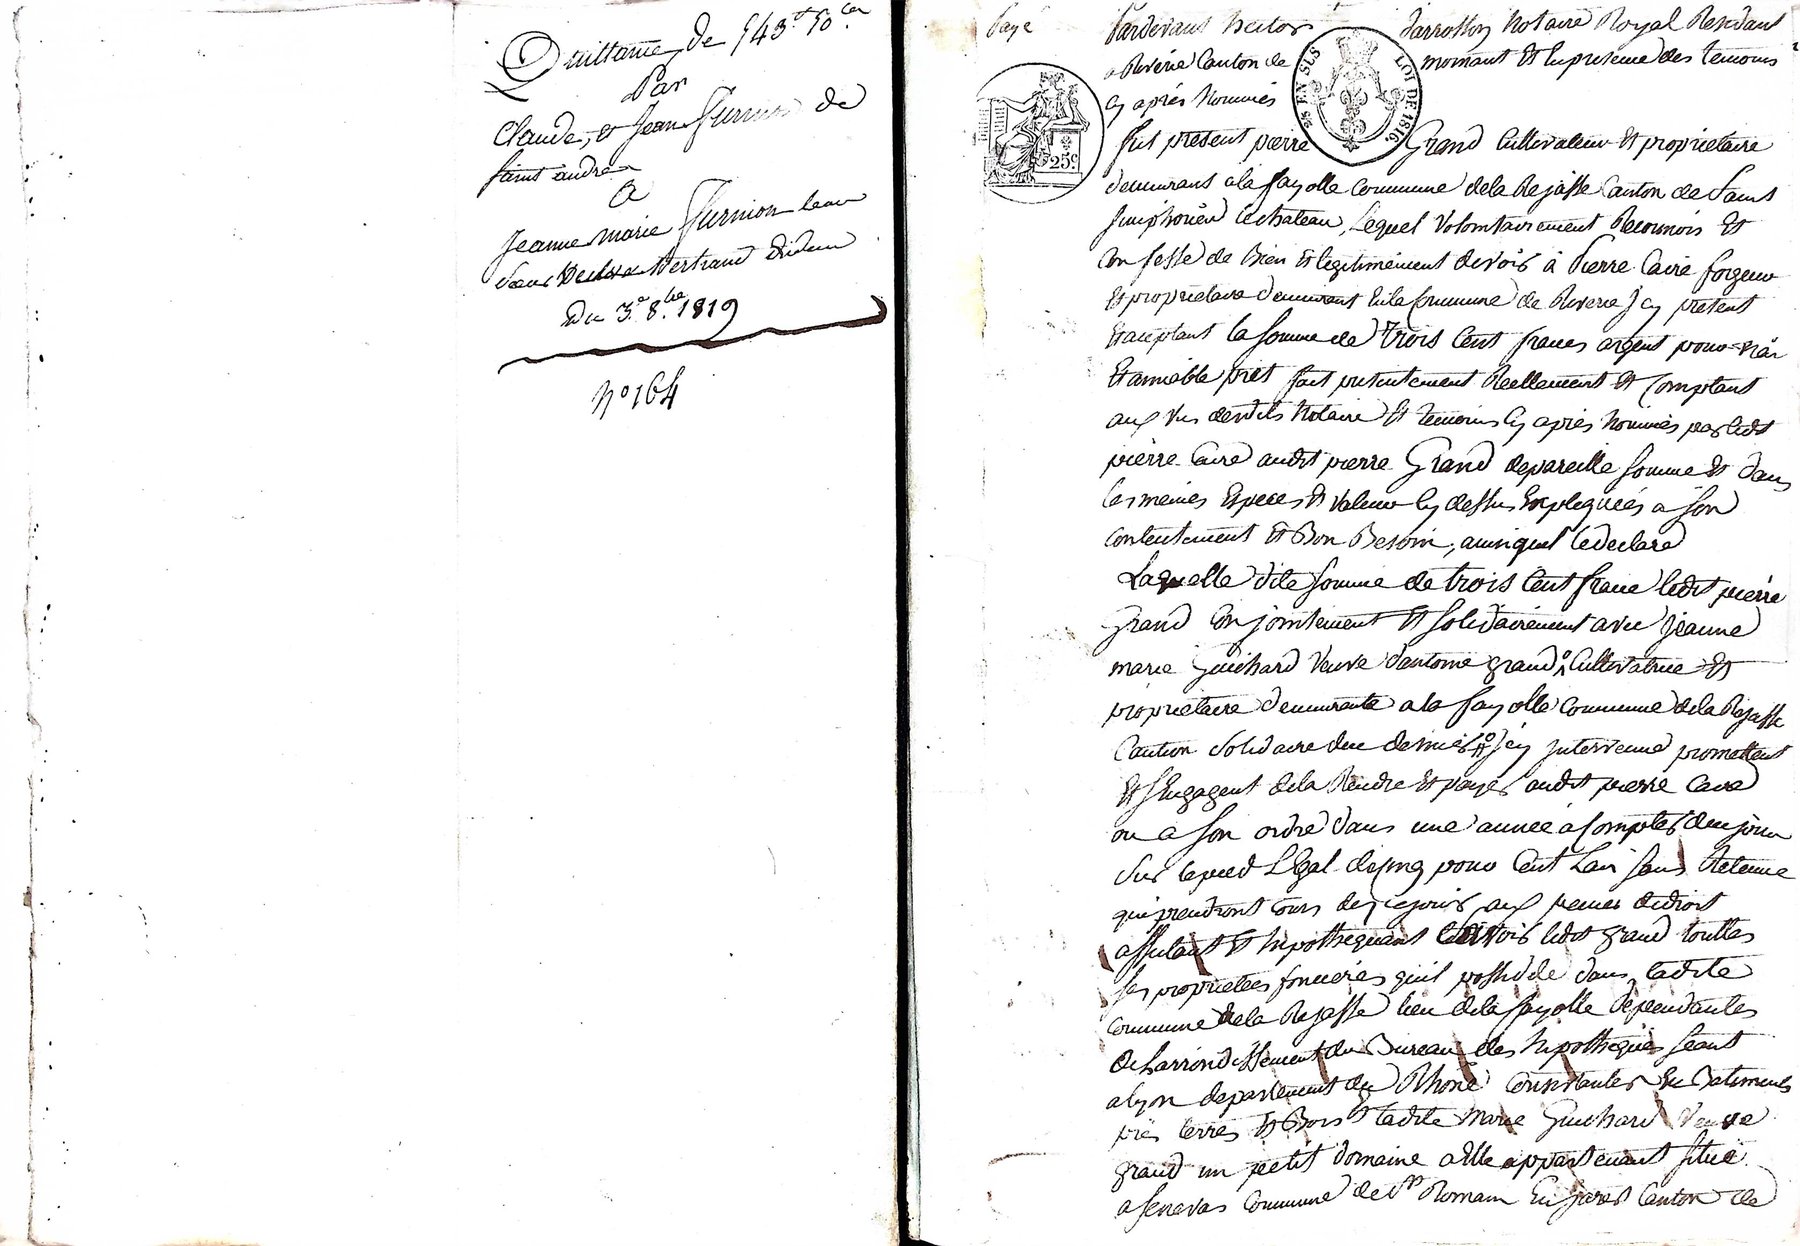 Quittance de 543.f 50.cen
Par
Claude, et Jean Furnion de
saint andré
a
Jeanne marie Furnion leur
sœur Bertrand
Du 3.e 8.bre 1819
N° 164
Payé
Pardevant hector Jarrosson Notaire Royal Residant
a Riverie Canton de mornant Et En presence des temoins
cy après Nommés
25 EN SUS LOI DE 1816.
25c.
fut present pierre Grand Cultivateur Et proprietaire
demeurant a la fayolle Commune dela Rajasse Canton de Saint
Simphorien le chateau, Lequel Volontairement Reconnois Et
Confesse de Bien Et legitimement devoir à Pierre Caire forgeur
Et proprietaire demeurant En la Commune de Riverie J cy present
Et acceptant la Somme de trois Cent francs argent pour
Et amiable prêt fait presentement Reellement Et Comptant
aux vus desdits Notaire Et temoins cy après Nommés par ledit
pierre Caire audit pierre Grand de pareille Somme Et dans
les mêmes Especes Et Valeur cy dessus Expliquées a Son
Contentement Et Bon Besoin, ainsi quil le declare
Laquelle dite Somme de trois Cent franc ledit pierre
Grand Conjointement Et Solidairement avec Jeanne
marie Guichard Veuve d'antoine grand Cultivatrice Et
proprietaire demeurante a la fayolle Commune dela Rajasse
Caution Solidaire du dernier J cy Intervenue promettent
Et S'Engagent dela Rendre Et payer audit pierre Caire
ou a Son ordre dans une année à Compter de ce jour
Sur le pied Légal de cinq pour Cent L'an Sans Retenue
qui prendront Cours dez ce jour aux peines de droit
affectant Et hipothequant Savoir ledit grand toutes
Ses proprietées foncieres qu'il possede dans ladite
Commune dela Rajasse lieu dela fayolle Dépendantes
de Larrondissement du Bureau des hipotheques Séant
a lyon departement du Rhone Consistantes En Batiments
prés terres Et Bois Et ladite Marie Guichard Veuve
grand un petit domaine a Elle appartenant Situé
a Senevas Commune de St Romain En Jarest Canton de